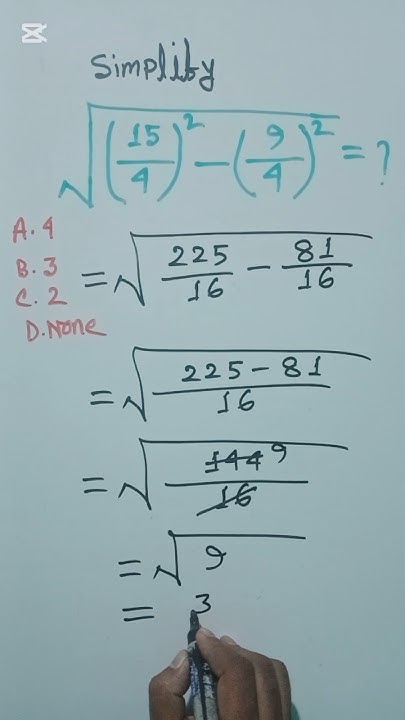 Simplify
√((15/4)² − (9/4)²) = ?
A. 4
B. 3
C. 2
D. None
= √(225/16 − 81/16)
= √((225 − 81)/16)
= √(144/16) 9
= √9
= 3